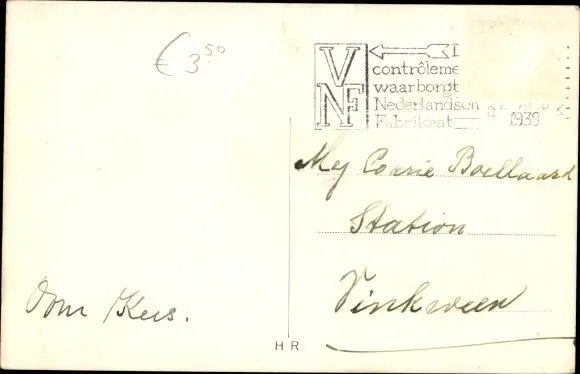 € 3.50
VNF
contrôleme
waarborgt
Nederlandsch
Fabrikaat
1939
Mej Corrie Boellaard
Station
Vinkeveen
Oom Kees.
H R